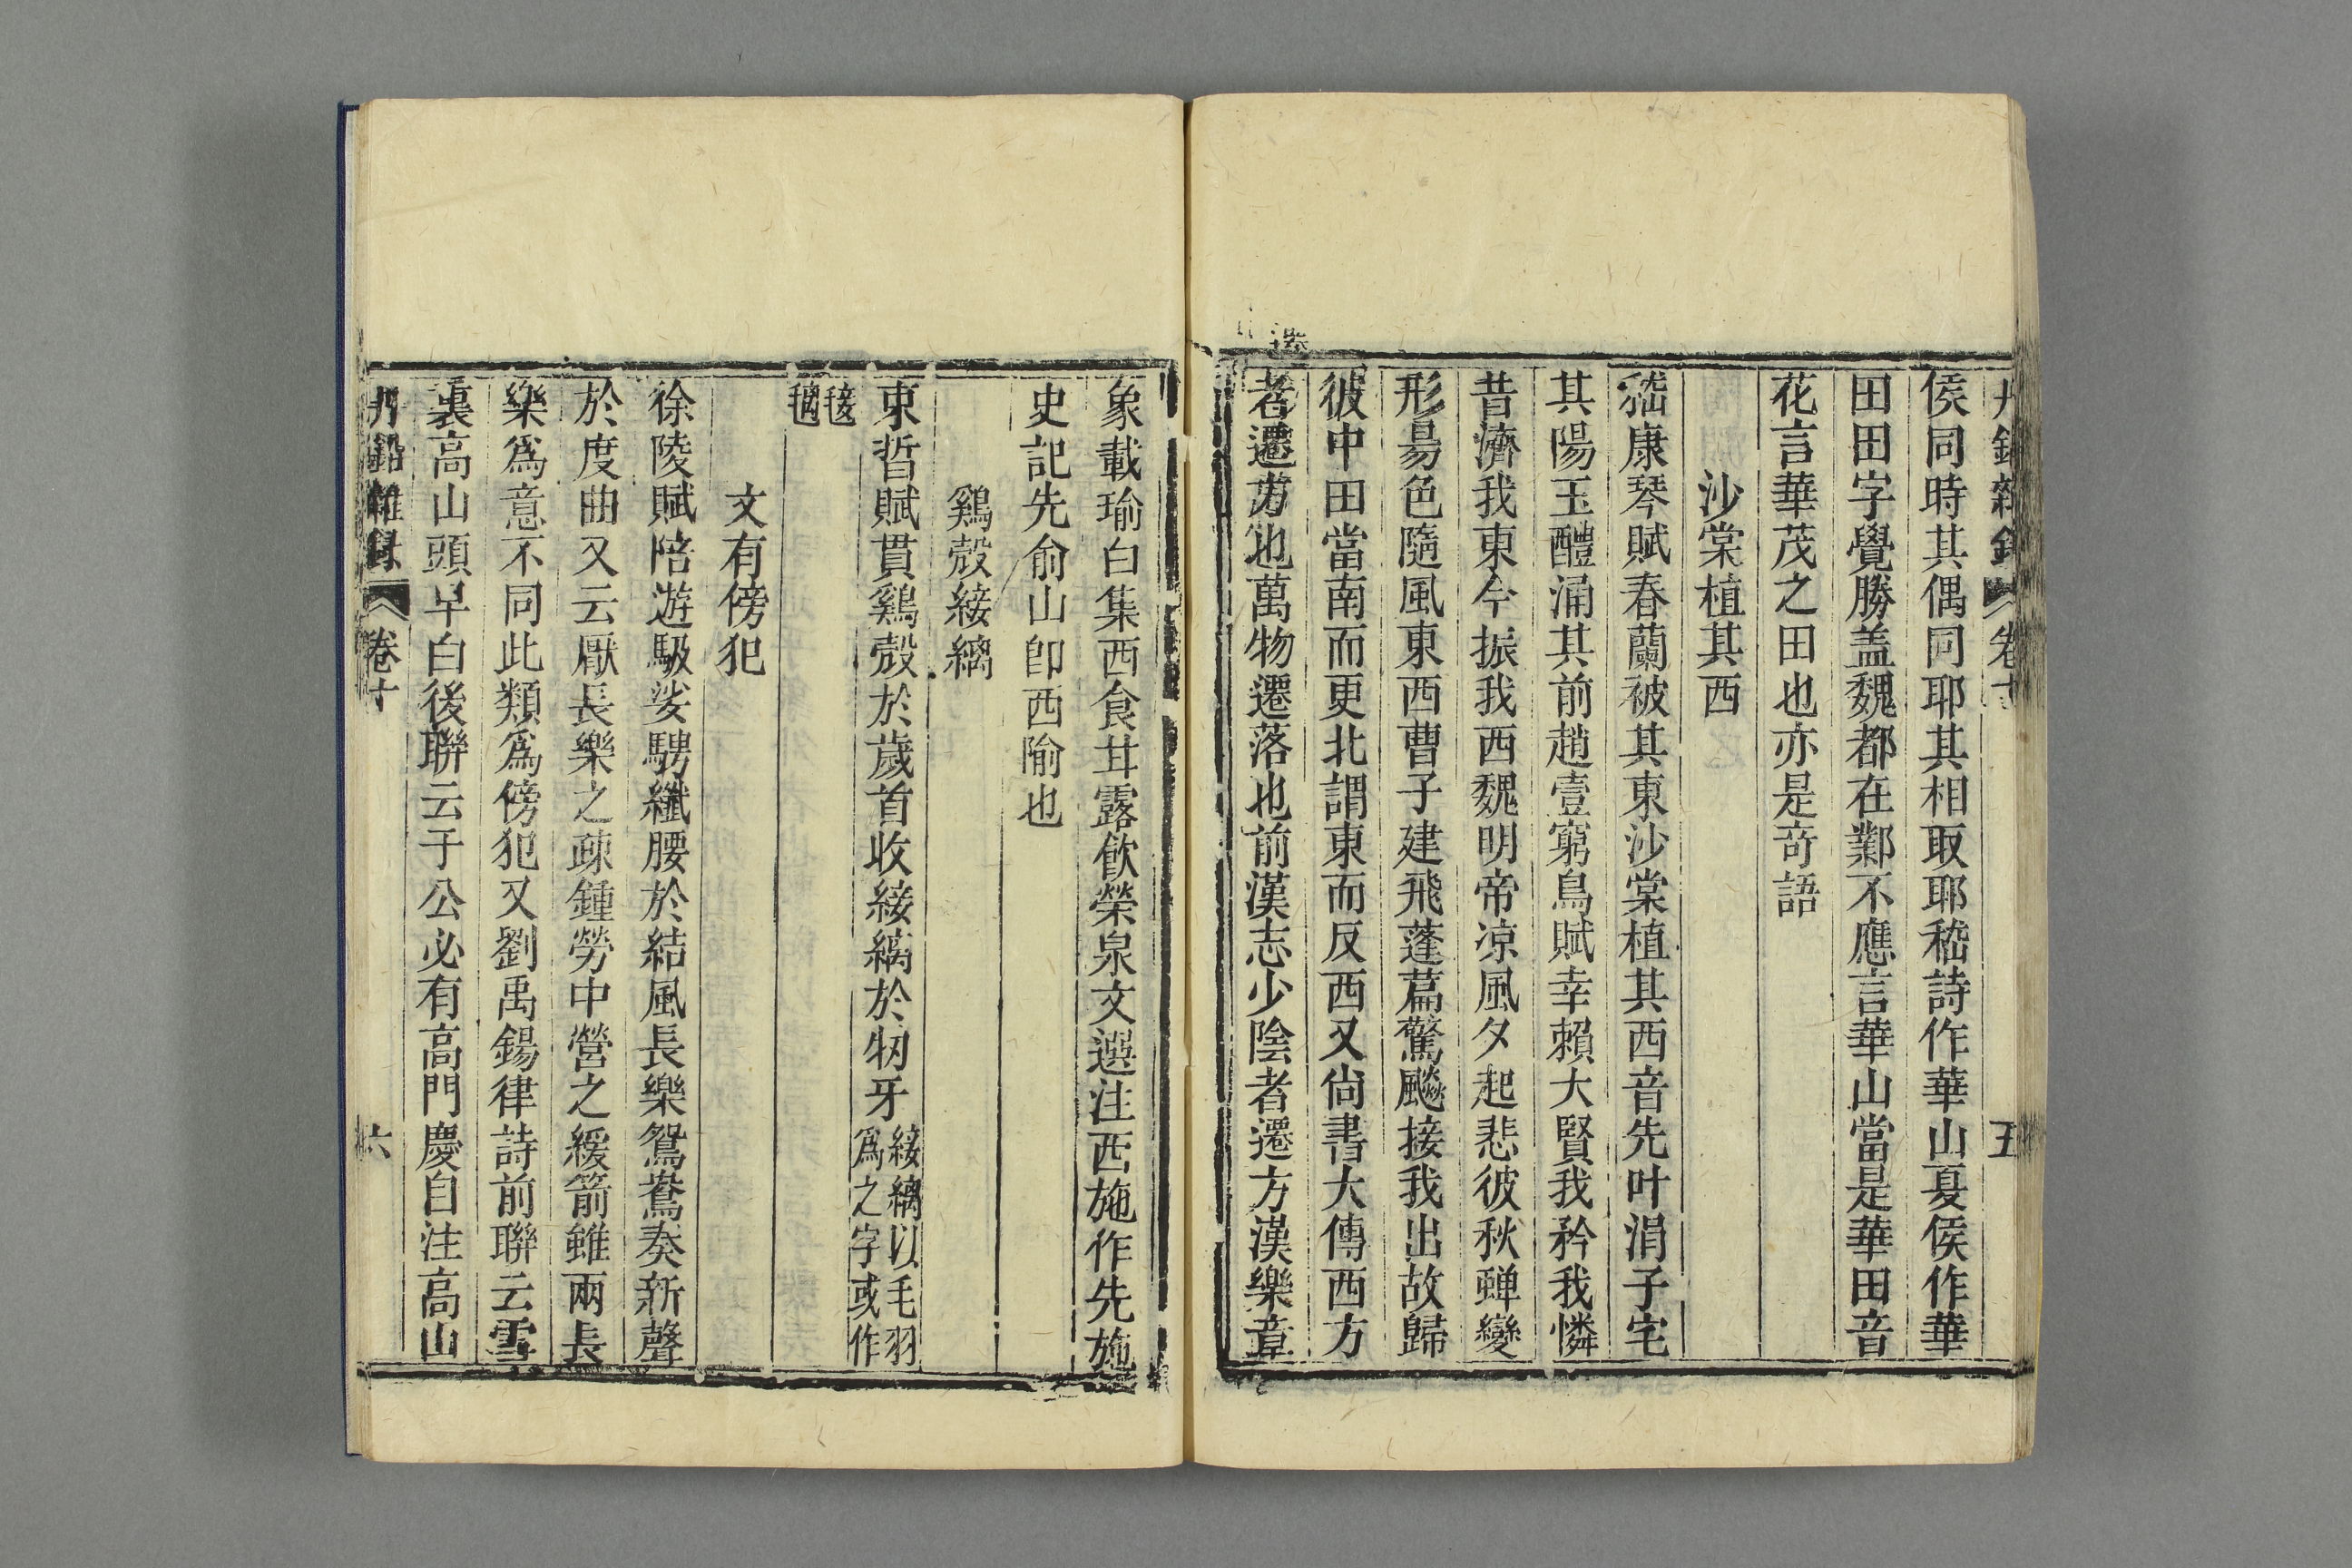 丹鉛雜錄 卷十 五
侯同時其偶同耶其相取耶嵇詩作華山夏侯作華
田田字覺勝盖魏都在鄴不應言華山當是華田音
花言華茂之田也亦是竒語
沙棠植其西
嵇康琴賦春蘭被其東沙棠植其西音先叶涓子宅
其陽玉醴涌其前趙壹窮鳥賦幸賴大賢我矜我憐
昔濟我東今振我西魏明帝凉風夕起悲彼秋蟬變
形昜色隨風東西曹子建飛蓬篇驚飈接我出故歸
彼中田當南而更北謂東而反西又尚書大傳西方
者遷方也萬物遷落也前漢志少陰者遷方漢樂章
象載瑜白集西食甘露飲榮泉文選注西施作先施
史記先俞山卽西隃也
鷄殻緌縭
束晳賦貫鷄殻於歲首收緌縭於牣牙緌縭以毛羽
爲之字或作
文有傍犯
徐陵賦陪遊馺娑騁纖腰於結風長樂鴛鴦奏新聲
於度曲又云厭長樂之疎鍾勞中營之緩箭雖兩長
樂爲意不同此類爲傍犯又劉禹錫律詩前聯云雪
裏高山頭早白後聯云于公必有高門慶自注高山
丹鉛雜錄 卷十 六